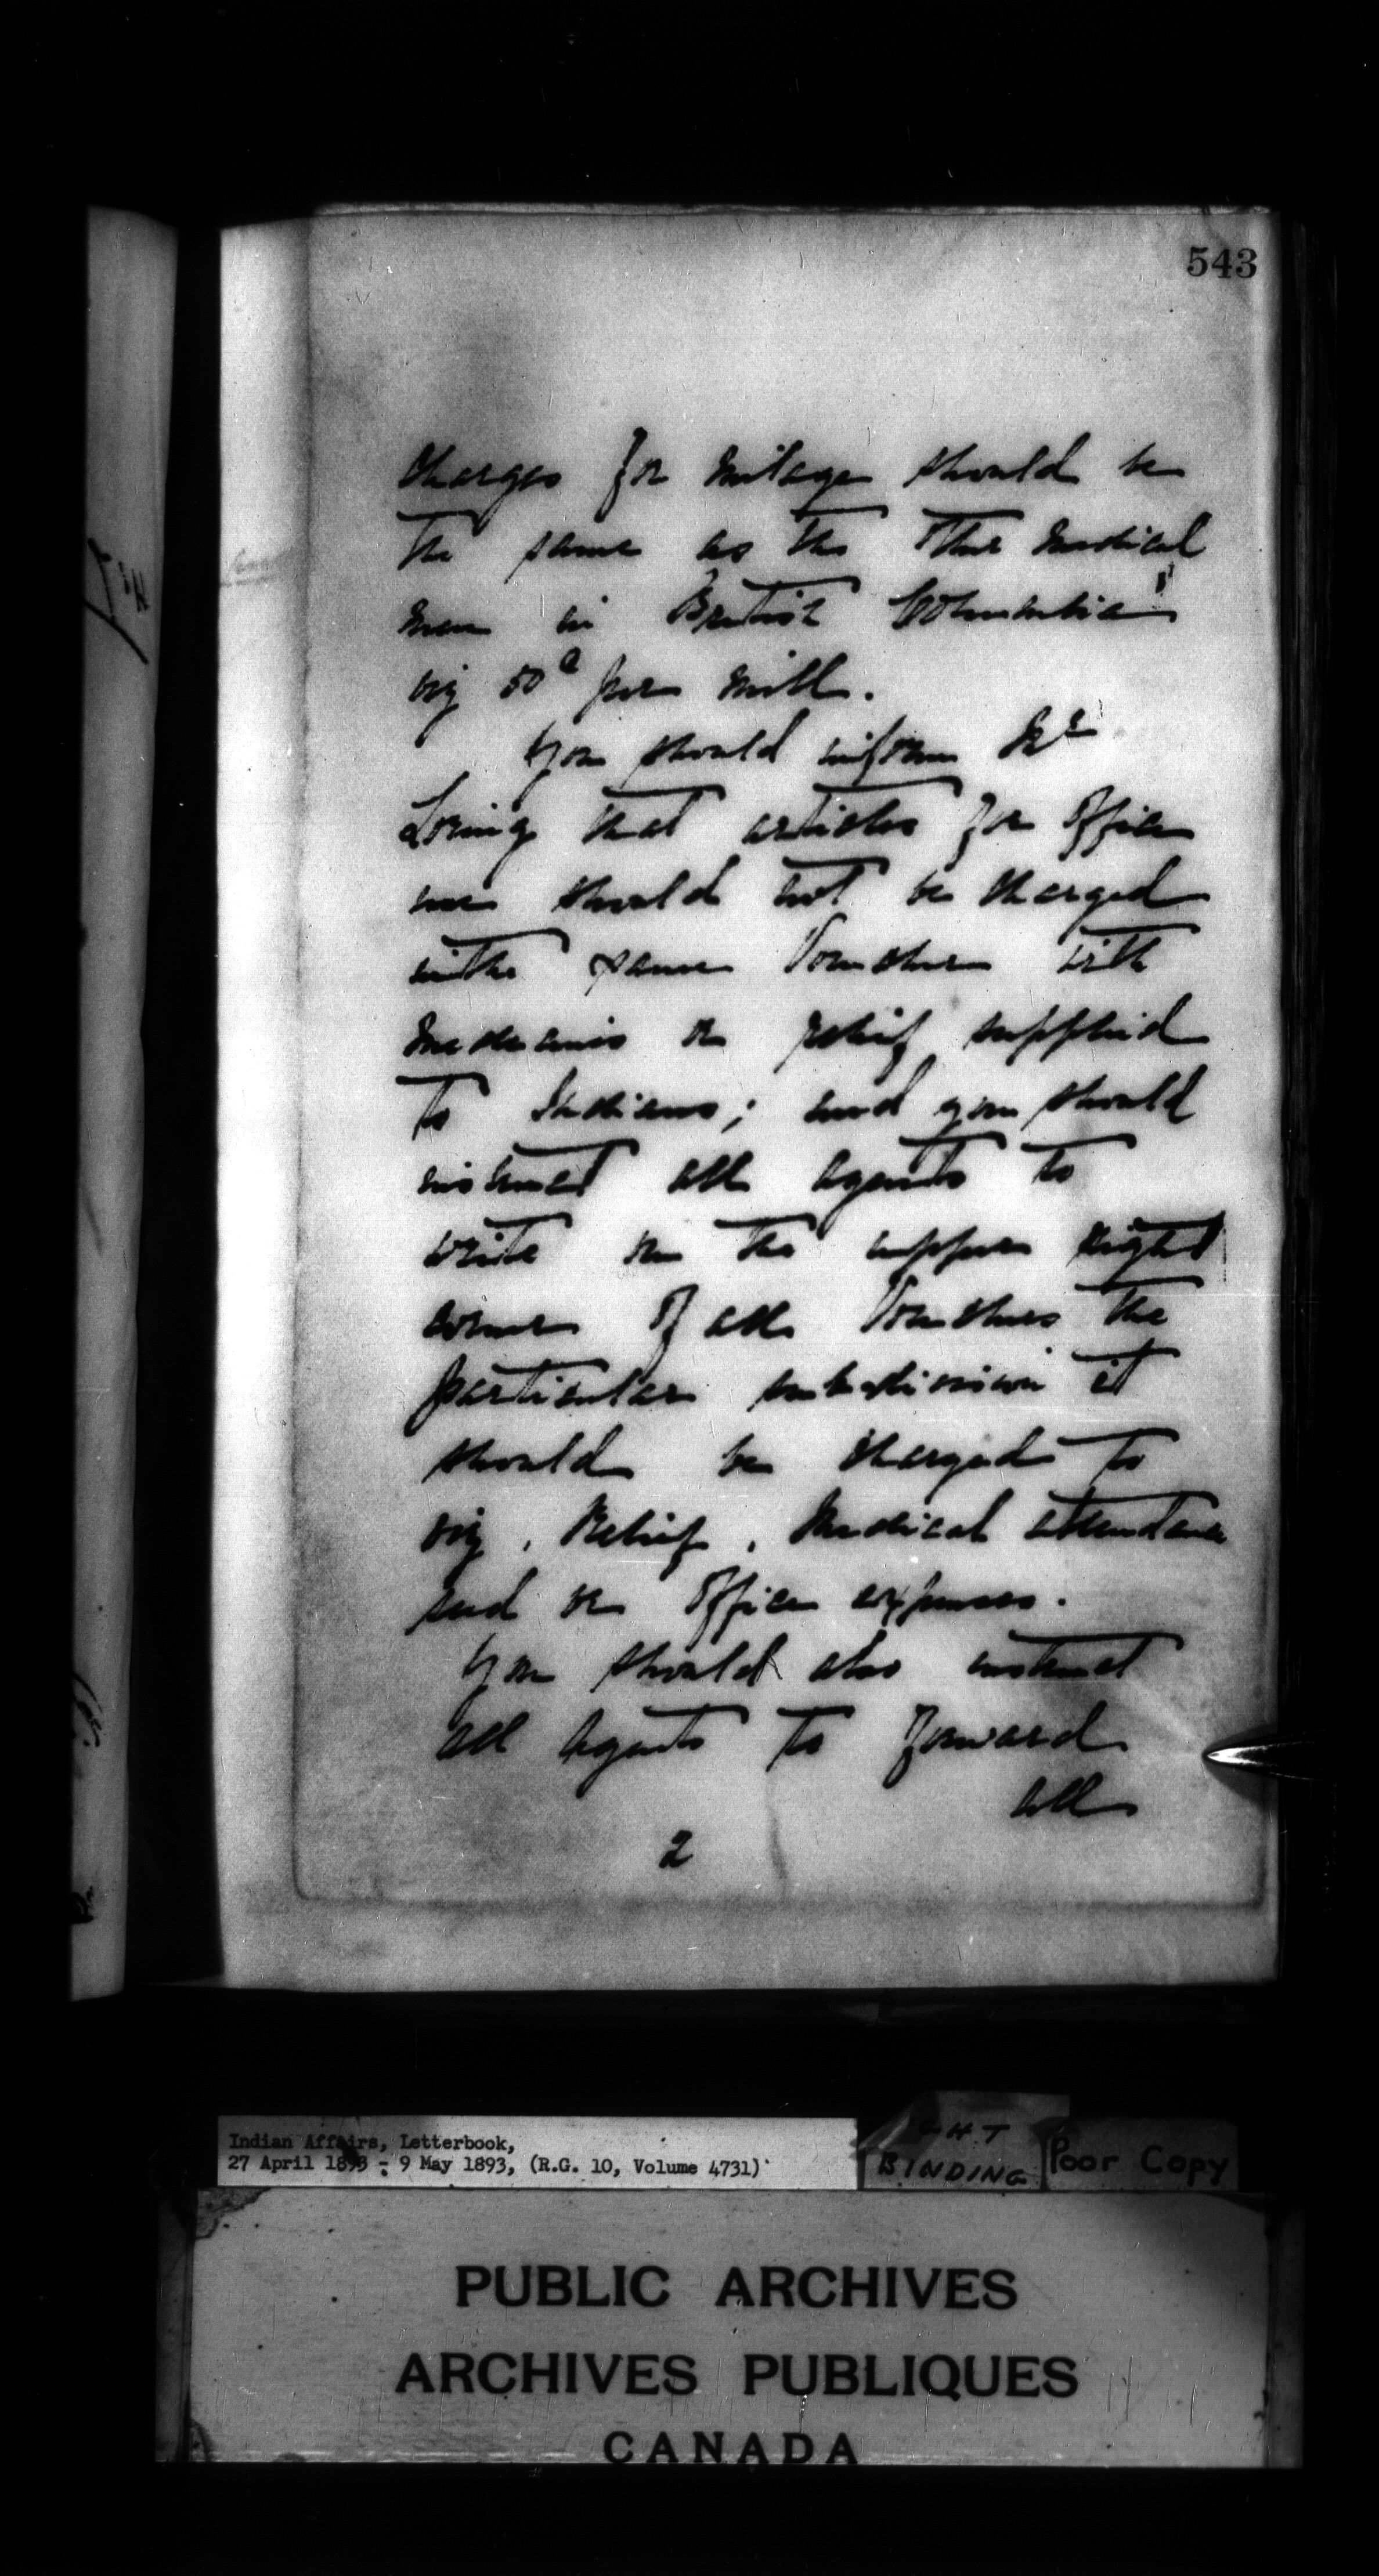 543
charges for milage should be
the same as the other medical
men in British Columbia
viz 50c per mile.
You should inform Mr
Loring that articles for office
use should not be charged
in the same Voucher with
medecines or relief supplied
to Indians; and you should
instruct all agents to
write on the upper right
corner of all Vouchers the
particular subdivision it
should be charged to
viz, Relief, Medical attendance
and or office expenses.
You should also instruct
all Agents to forward
all
2
Indian Affairs, Letterbook,
27 April 1893 - 9 May 1893, (R.G. 10, Volume 4731)
BINDING
Poor Copy
PUBLIC ARCHIVES
ARCHIVES PUBLIQUES
CANADA